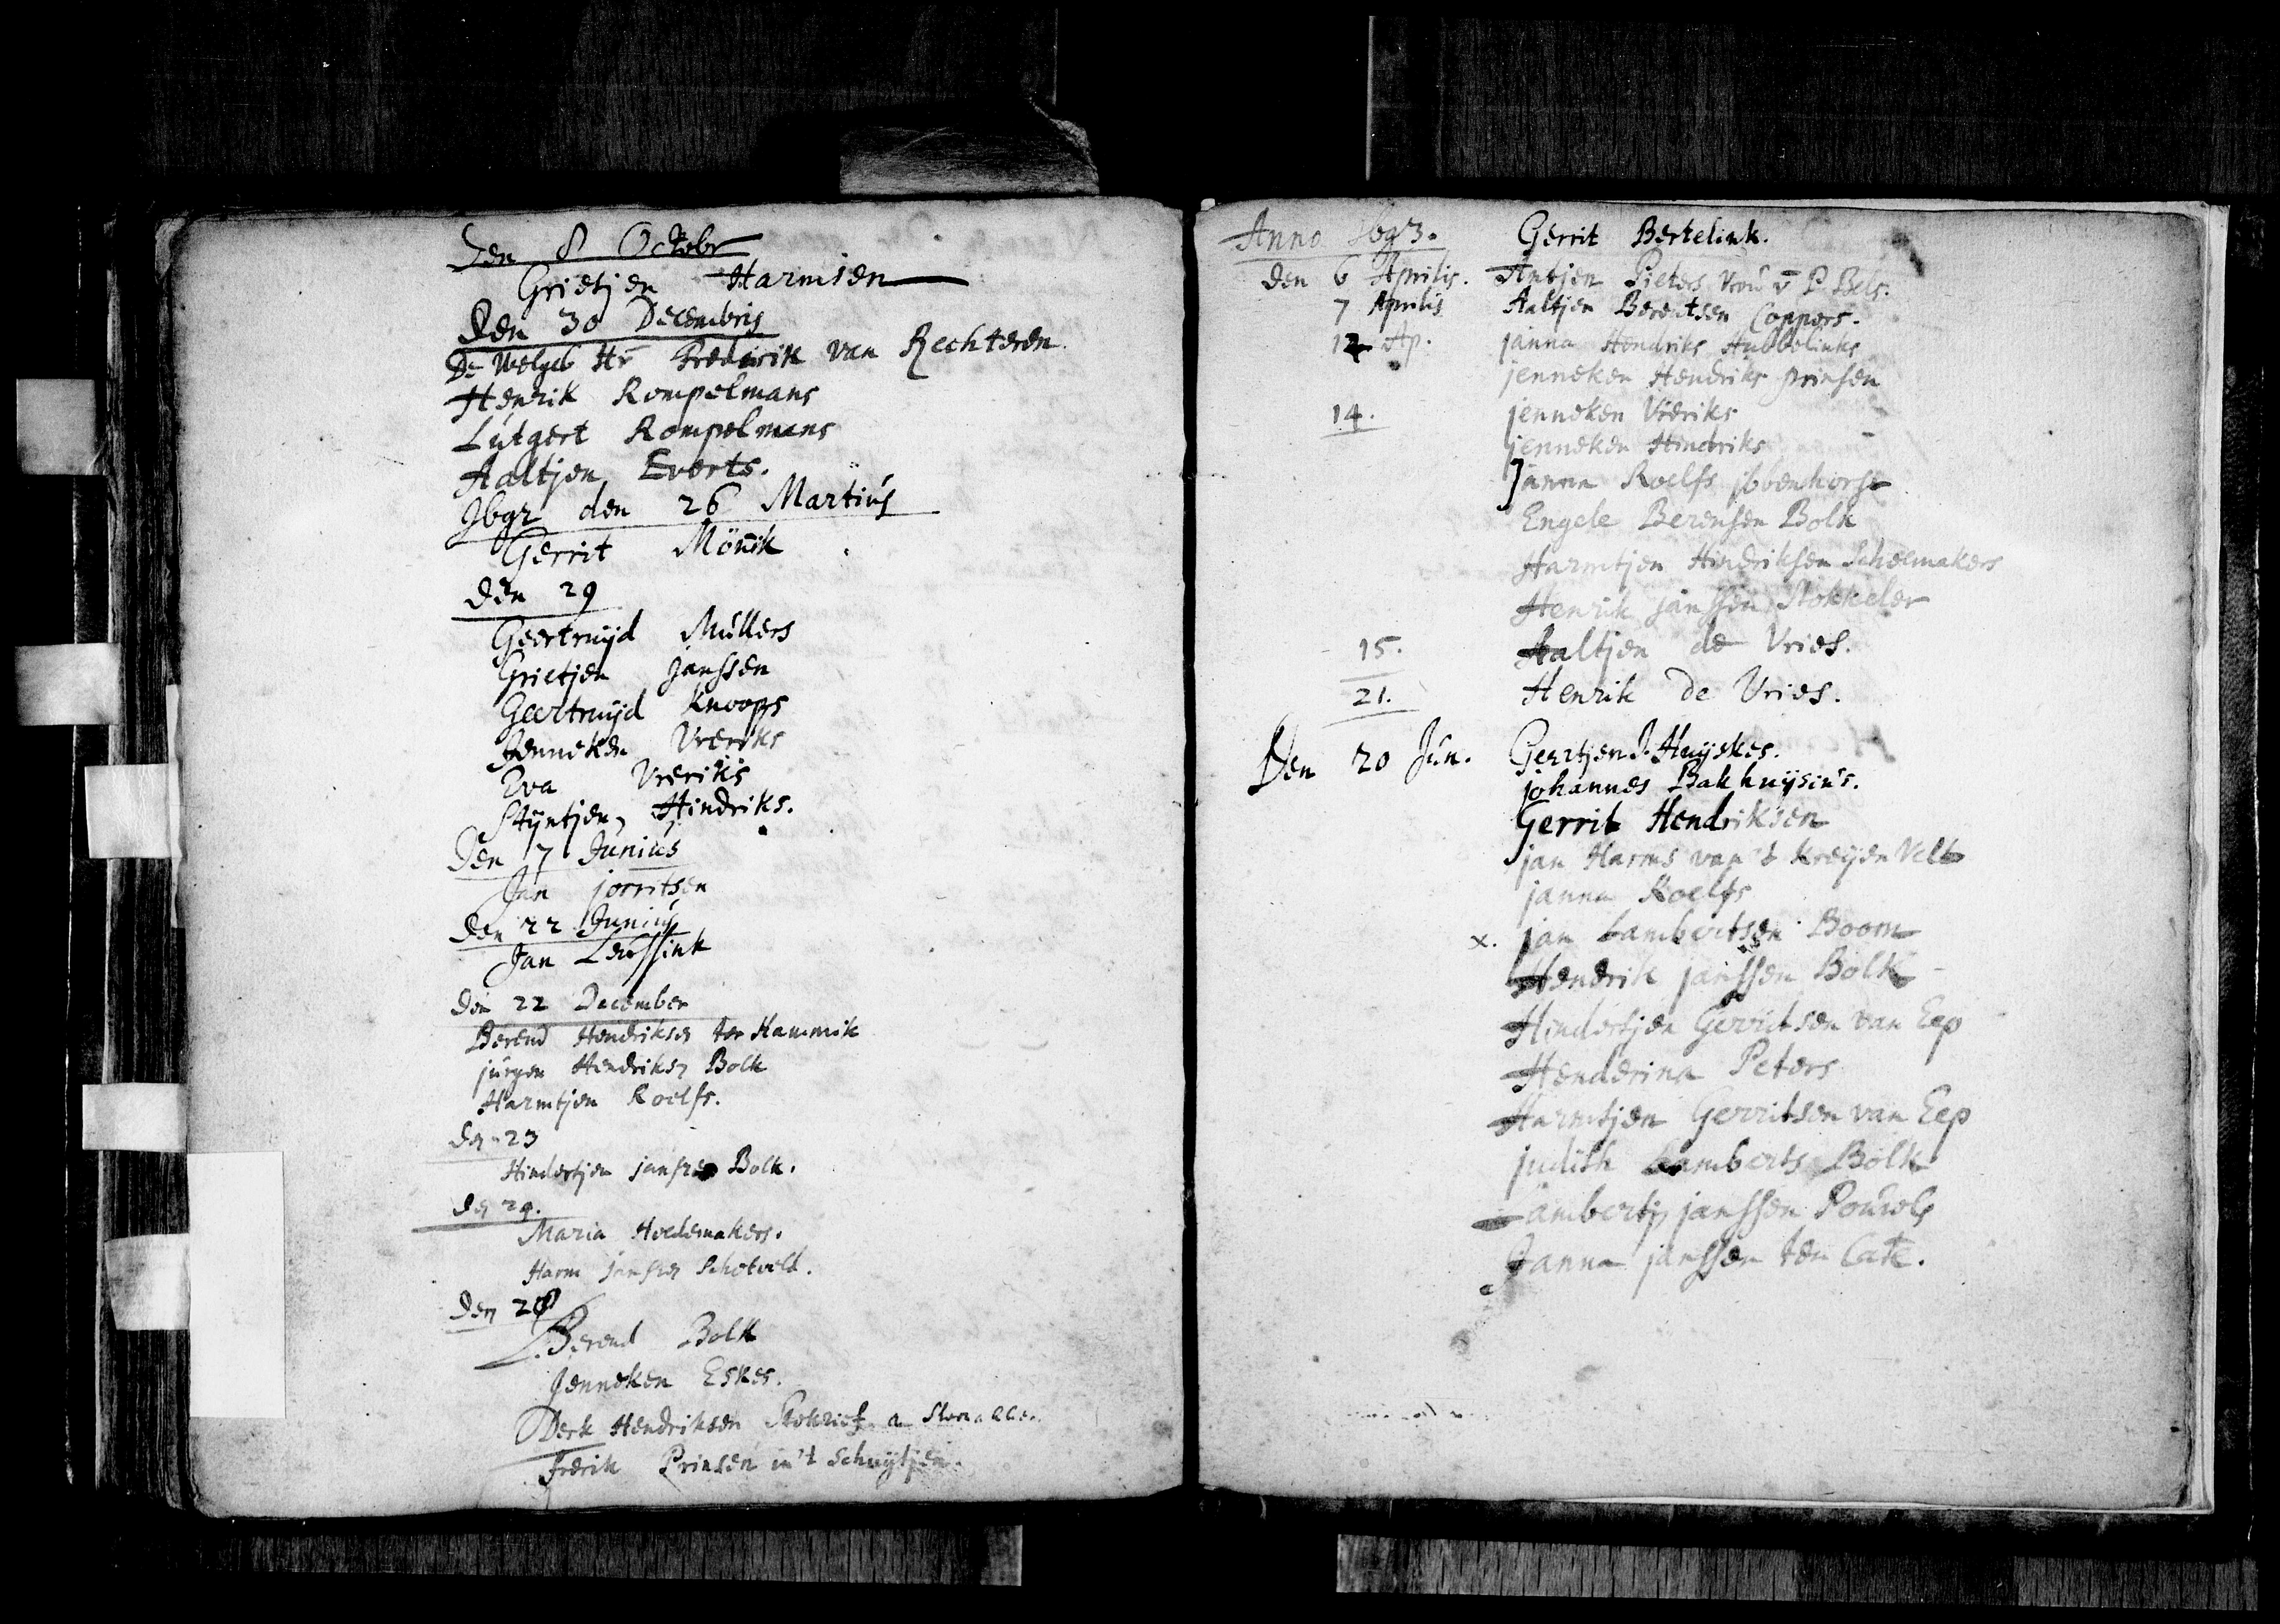 Den 8 Octobr
Grietjen Harmsen
Den 30 Decembris
De Welgeb Hr Frederik van Rechteren
Henrik Rompelmans
Lútgert Rompelmans
Aaltjen Everts.
1692 den 26 Martiús
Gerrit Mönik
Den 29
Geertruijd Mullers
Grietjen Janssen
Geertruijd Knoops
Jenneken Vreriks
Eva Vreriks
Stijntjen Hindriks.
Den 7 Juniús
Jan jorritsen
Den 22 Juniús
Jan Leussink
Den 22 December
Berend Hendriksen ter Hammik
júrgen Hendriksen Bolk
Harmtjen Roelfs.
Den 23
Hindertjen janssen Bolk.
Den 24.
Maria Hoedemakers.
Harm janssen Schotveld.
Den 28
Berend Bolk
Jenneken Eskes.
Derk Hendriksen a
Frerik Prinsen in't Schuijtjen.
Anno 1693. Gerrit Bertelink.
den 6 Aprilis. Antjen Pieters vrou v P. Bels.
7 Aprilis Aaltjen Berentsen Coppers.
12 Ap. janna Hendriks Hubbelinks
jenneken Hendriks prinsen
14. jenneken Vreriks
jenneken Hindriks
Janna Roelfs jbbenhorst
Engele Berensen Bolk
Harmtjen Hindriksen Schoemakers
Henrik janssen Stokkeler
15. Aaltjen de Vries.
21. Henrik de Vries.
Den 20 Jún. Geertjen J. Huijskes.
johannes Bakhuijsen's.
Gerrit Hendriksen
jan Harms van 't Kreijen Velt
janna Roelfs
x. jan Lambertsen Boom
Hendrik janssen Bolk
Hindertjen Gerridsen van Eep
Henderina Peters
Harmtjen Gerritsen van Eep
judith Lamberts Bolk
Lambertjen janssen Pouwels
Janna janssen ten Cate.